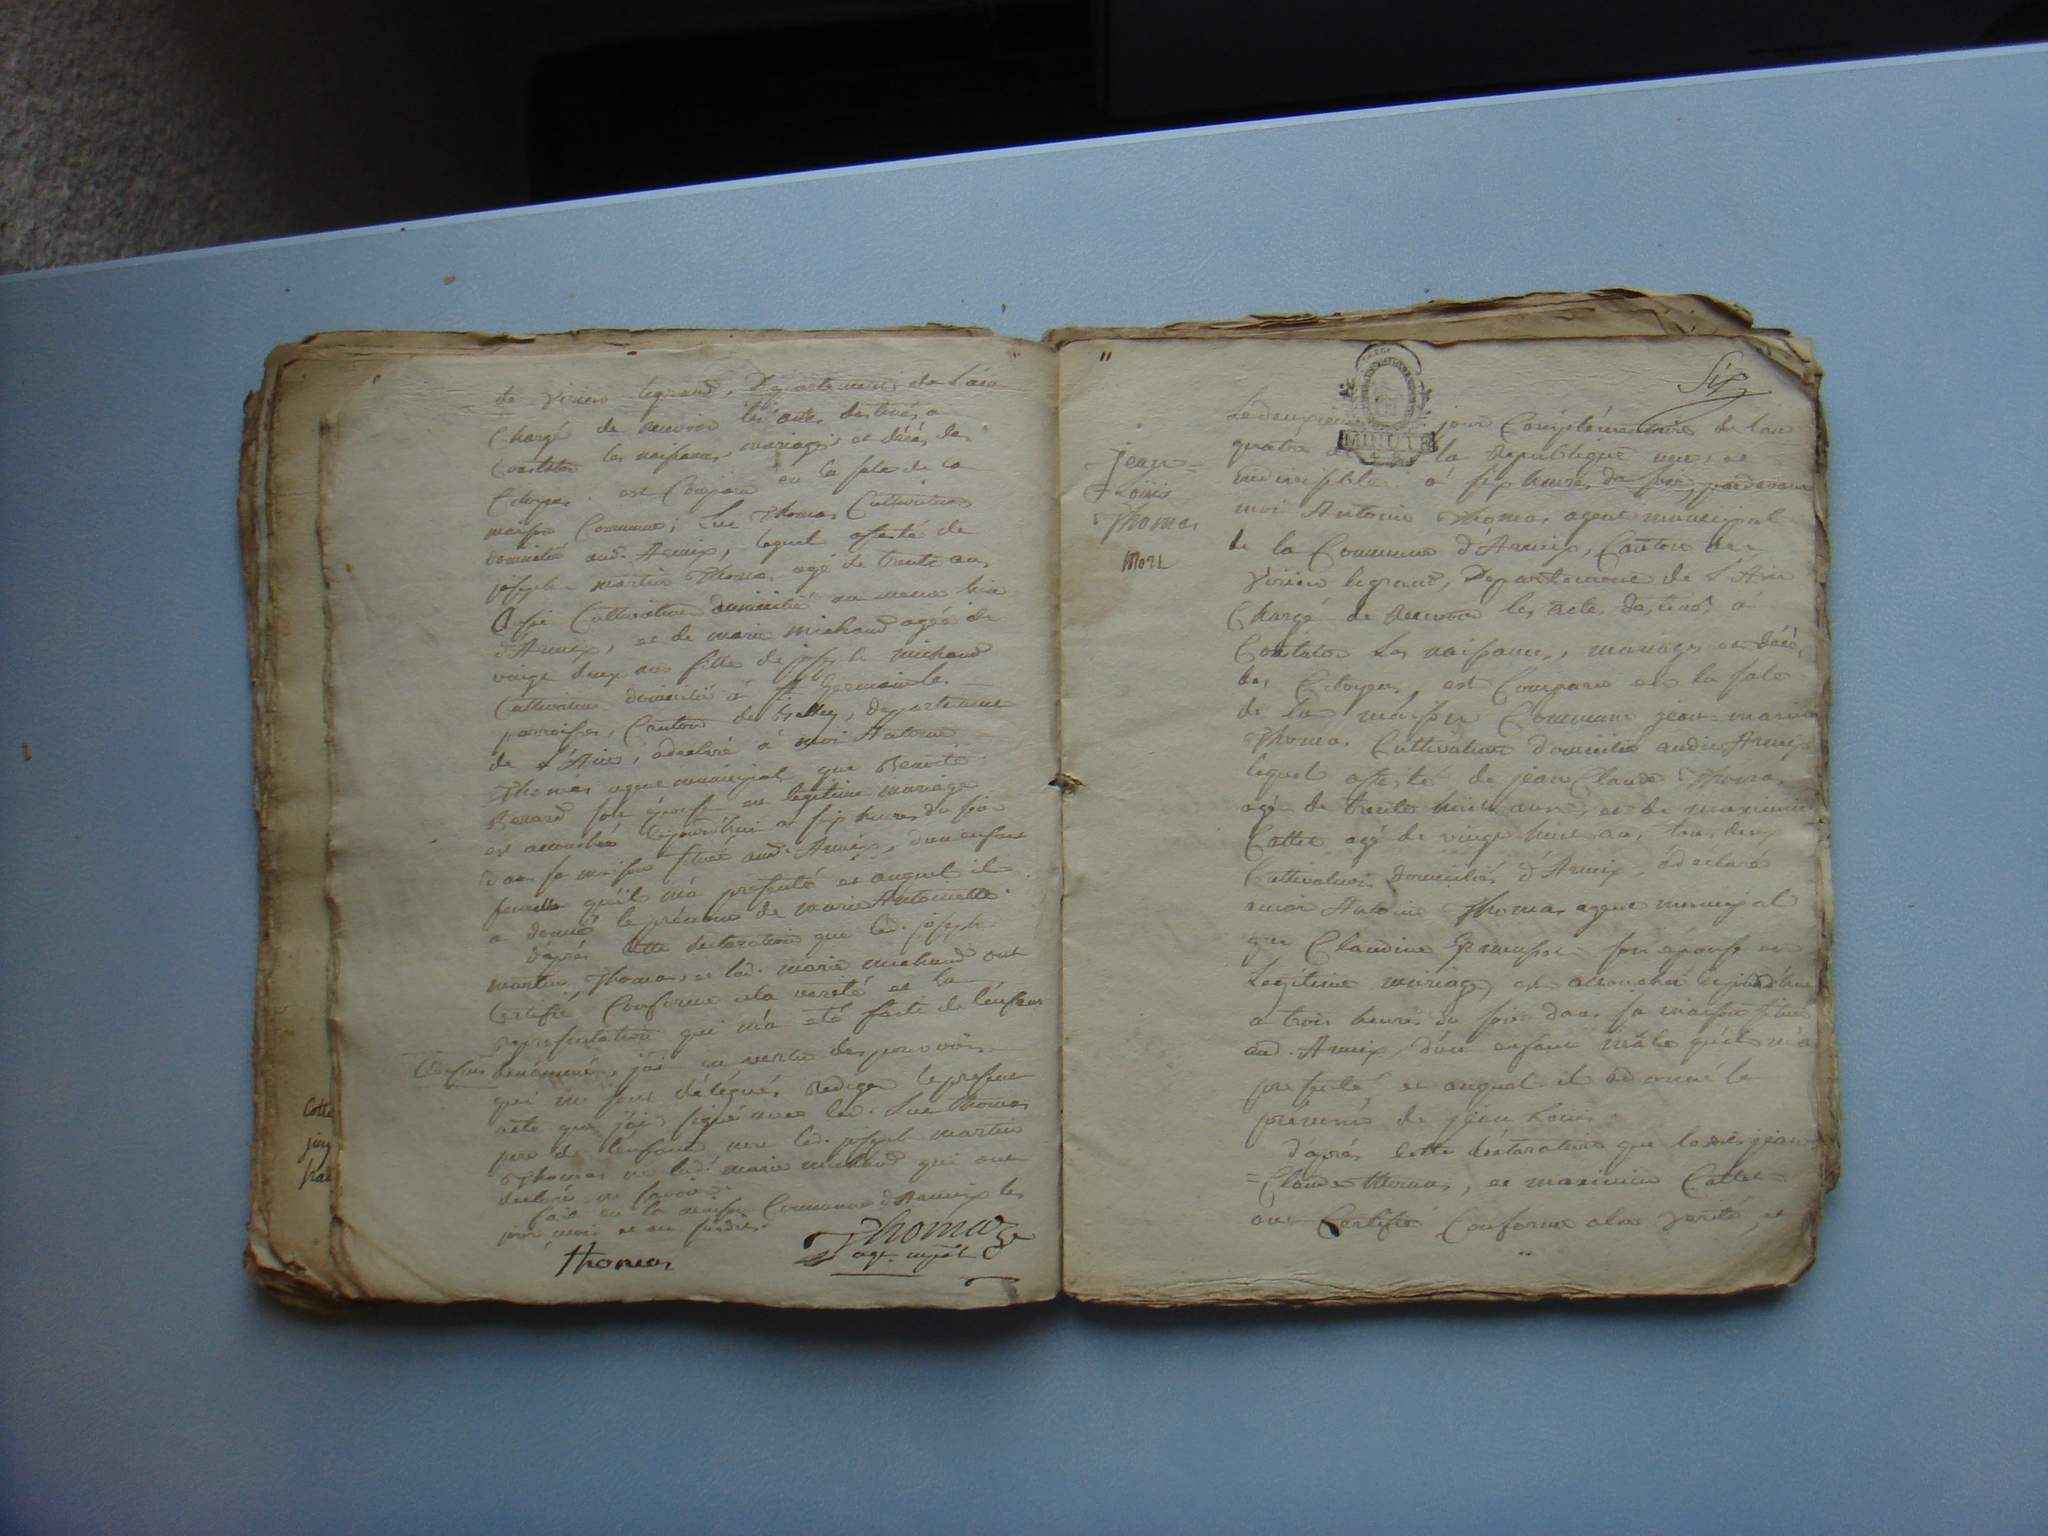 de virieu legrand, Département de L'ain
Chargé de recevoir les actes destinés a
Constater les naissances, mariages et décés des
Citoyens. est Comparu en la sale de la
maison Commune; Luc Thomas Cultivateur
domicilié aud. Armix, lequel assisté de
joseph martin Thomas agé de trente ans
Cultivateur domicilié au meme lieu
d'Armix, et de marie michaud agée de
vingt deux ans fille de joseph michaud
Cultivateur domicilié à st Germain les
parroisses, Canton de Belley, departement
de L'Ain, adeclaré à moi Antoine
Thomas agent municipal que Benoite
Bavard son épouse en légitime mariage
est accouchée aujourd'hui a six heures du soir
dans sa maison située aud. Armix, d'un enfant
femelle qu'il m'a presenté et auquel il
a donné le prénom de marie Antoinette.
d'après cette declaration que led. joseph
martin Thomas, et lad. marie michaud ont
Certifié Conforme ala verité et la
representation qui m'a été faite de l'enfant
denommé, j'ai en vertu des pouvoirs
qui me sont délégués, Redigé le present
acte que j'ai signé avec led. Luc Thomas
pere de l'enfant, non led. joseph martin
Thomas ni lad. marie michaud qui ont
declaré ne savoir.
fait en la maison Commune d'Armix les
jour, mois et an susdits.
Thomas
Thomas
agt. mpal
Cotte
Six
MINUTE
jean=
Loüis
Thomas
Mort
Le deuxieme jour Complémentaire de l'an
quatre de la Republique une, et
indivisible à six heures du soir, pardevant
moi Antoine Thomas agent municipal
de la Commune d'Armix, Canton de
Virieu legrand, Departement de L'Ain
Chargé de recevoir les actes destinés à
Constater Les naissances, mariages et décés,
des Citoyens, est Comparu en la sale
de la maison Commune jean-marie
Thomas Cultivateur domicilié audit Armix
lequel assisté de jean Claude Thomas
agé de trente huit ans, et de maximin
Cottet agé de vingt huit ans, tous deux
Cultivateurs domiciliés d'Armix, adeclaré
amoi Antoine Thomas agent municipal
que Claudine son épouse en
Legitime mariage est accouchée aujourd'hui
a trois heures du soir dans sa maison située
aud. Armix, d'un enfant mâle qu'il m'a
presenté, et auquel il adonné le
prénoms de jean Loüis.
d'après cette déclaration que lesdits jean
=Claude Thomas, et maximin Cottet
ont Certifié Conforme ala verité, et